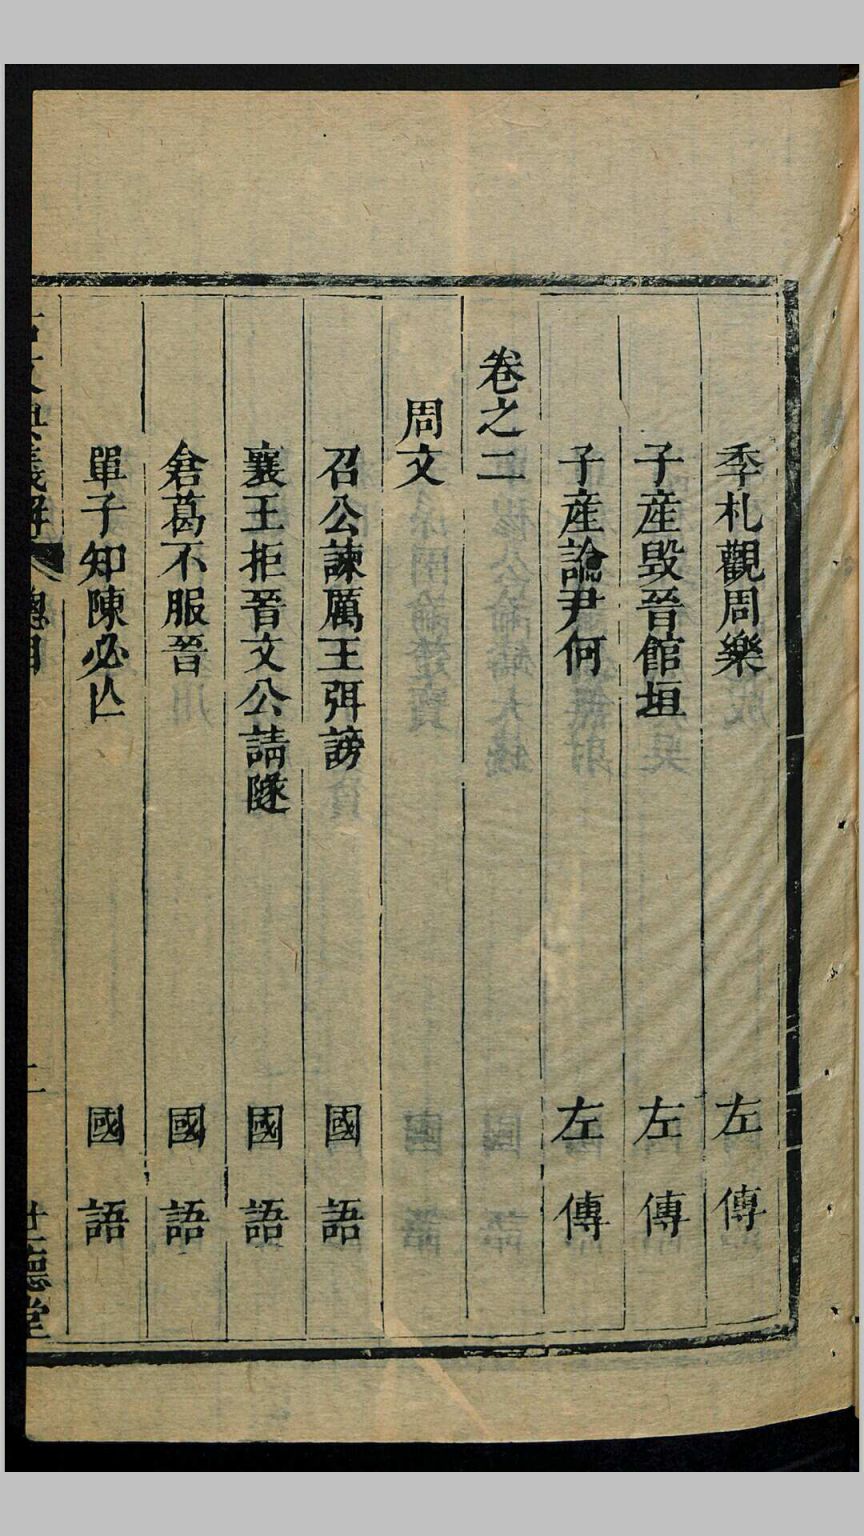 季札觀周樂 左傳
子產毁晉館垣 左傳
子產論尹何 左傳
卷之二
周文
召公諫厲王弭謗 國語
襄王拒晉文公請隧 國語
倉葛不服晉 國語
單子知陳必亾 國語
總目 二 世德堂